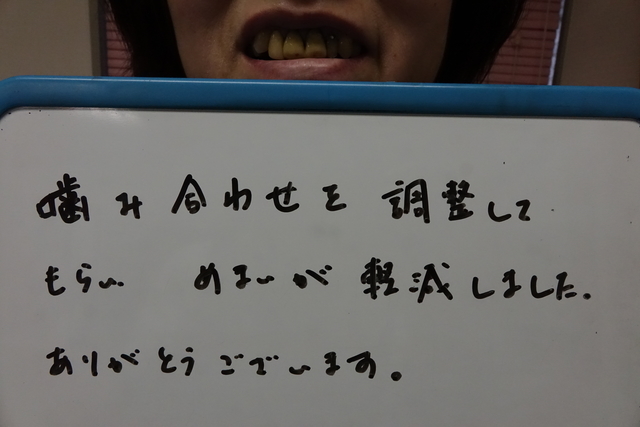 噛み合わせを調整して
もらい めまいが軽減しました.
ありがとうございます。